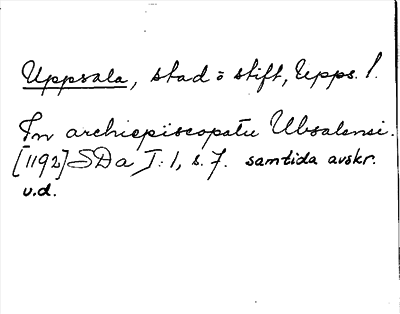 Uppsala, stad o stift, Upps. l.
In archiepiscopatu Ubsalensi.
[1192] SDa I: 1, s. 7. samtida avskr.
u.d.